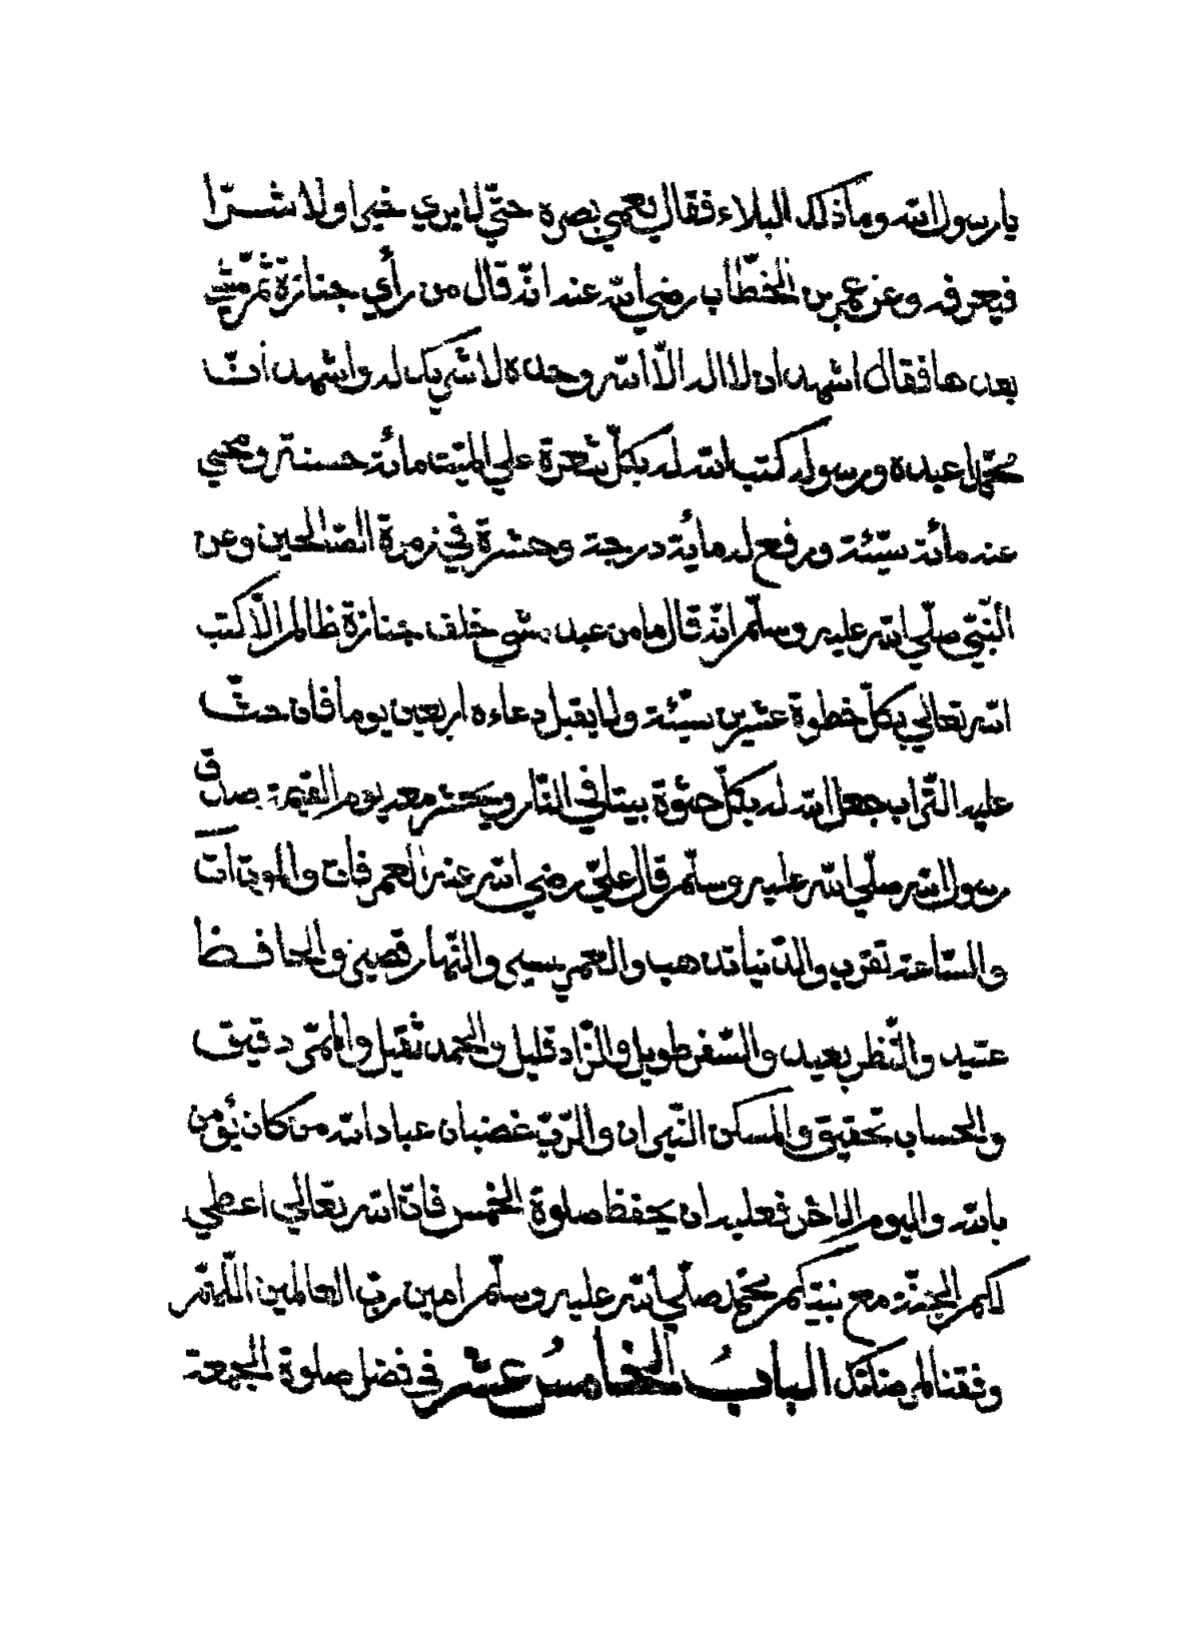 يا رسول الله وما ذلك البلاء فقال يعمي بصره حتّي لا يري خيرا ولا شرّا
فيعرفه وعن عمر بن الخطّاب رضي الله عنه انّه قال من رأي جنازة ثمّ مشي
بعدها فقال اشهد ان لا اله الّا الله وحده لا شريك له واشهد انّ
محمّدا عبده ورسوله كتب الله له بكلّ شعرة علي الميّت مائة حسنة ومحي
عنه مائة سيّئة ورفع له ماية درجة وحشرة في زمرة الصّالحين وعن
النّبيّ صلّي الله عليه وسلّم انّه قال ما من عبد مشي خلف جنازة ظالم الّا كتب
الله تعالي بكلّ خطوة عشرين سيّئة ولا يقبل دعاءه اربعين يوما فان حثّ
عليه التّراب جعل الله له بكلّ حثوة بيتا في النّار ويحشر معه يوم القيٰمة صدق
رسول الله صلّي الله عليه وسلّم قال عليّ رضي الله عنه العمر فات والموت آت
والسّاعة تقرب والدّنيا تذهب والعمي سيي والنّهار قصير والحافظ
عتيد والنّظر بعيد والسّفر طويل والزّاد قليل والحمد ثقيل والممرّ دقيق
والحساب تحقيق والمسكن النّيران والرّبّ غضبان عباد الله من كان يؤمن
بالله واليوم الاخر فعليه ان يحفظ صلوة الخمس فانّ الله تعالي اعطي
لكم الجنّة مع نبيّكم محمّد صلّي الله عليه وسلّم امين ربّ العالمين اللّهمّ
وفقنا لمرضاتك البابُ الخامسُ عشر في فضل صلوة الجمعة